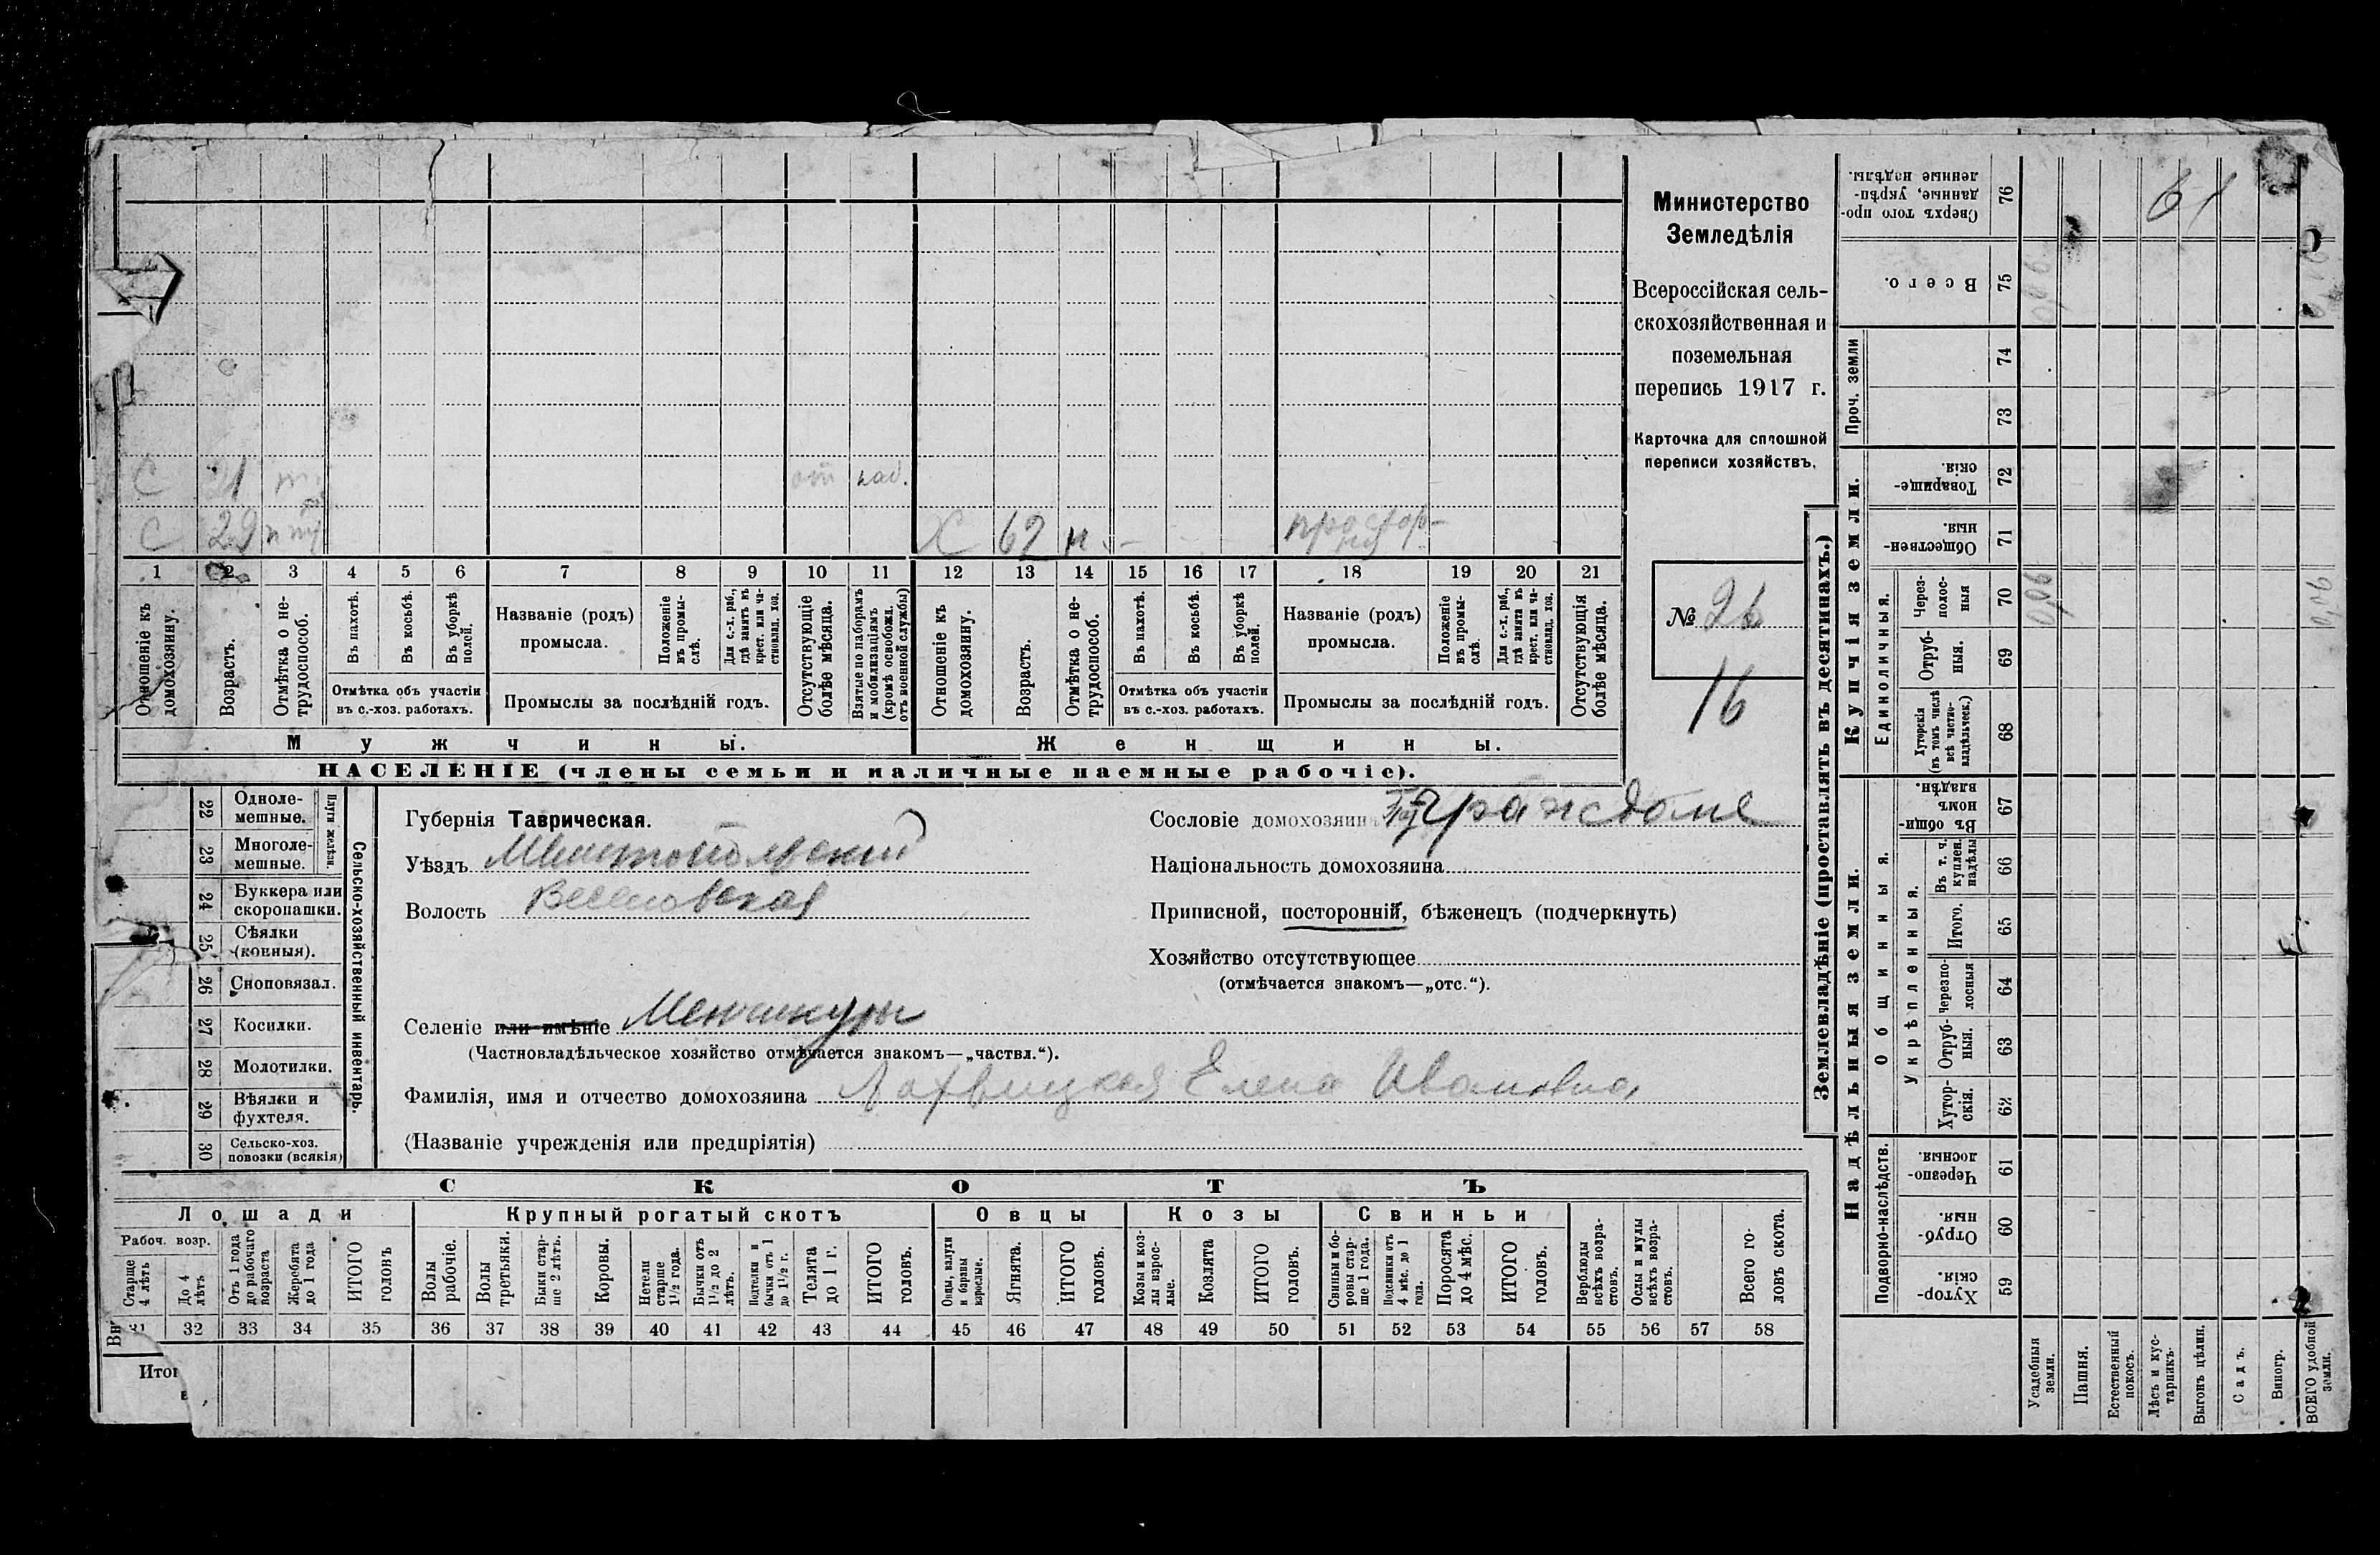 С 21 от наб.
С 29 Х 62 н
1 2 3 4 5 6 7 8 9 10 11 12 13 14 15 16 17 18 19 20 21
Отношеніе къ домохозяину.
Возрастъ.
Отмѣтка о нетрудоспособ.
Въ пахотѣ.
Въ косьбѣ.
Въ уборкѣ полей.
Отмѣтка объ участіи
въ с.-хоз. работахъ.
Названіе (родъ)
промысла.
Положеніе въ промыслѣ.
Для с.-х. раб., гдѣ занятъ въ крест. или частновлад. хоз.
Промыслы за послѣдній годъ.
Отсутствующіе болѣе мѣсяца.
Взятые по наборамъ и мобилизаціямъ (кромѣ освобожд. отъ военной службы)
Отношеніе къ домохозяину.
Возрастъ.
Отмѣтка о нетрудоспособ.
Въ пахотѣ.
Въ косьбѣ.
Въ уборкѣ полей.
Отмѣтка объ участіи
въ с.-хоз. работахъ.
Названіе (родъ)
промысла.
Положеніе въ промыслѣ.
Для с.-х. раб., гдѣ занята въ крест. или частновлад. хоз.
Промыслы за послѣдній годъ.
Отсутствующія болѣе мѣсяца.
Мужчины. Женщины.
НАСЕЛЕНІЕ (члены семьи и наличные наемные рабочіе).
Министерство
Земледѣлія
Всероссійская сель-
скохозяйственная и
поземельная
перепись 1917 г.
Карточка для сплошной
переписи хозяйствъ.
№ 26
16
22 Одноле-
мешные.
23 Многоле-
мешные.
Плуги желѣзн.
24 Буккера или
скоропашки.
25 Сѣялки
(конныя).
26 Сноповязал.
27 Косилки.
28 Молотилки.
29 Вѣялки и
фухтеля.
30 Сельско-хоз.
повозки (всякія)
Сельско-хозяйственный инвентарь.
Губернія Таврическая.
Уѣздъ Мелитопольскій
Волость Веселовская
Сословіе домохозяина граждане
Національность домохозяина
Приписной, посторонній, бѣженецъ (подчеркнуть)
Хозяйство отсутствующее
(отмѣчается знакомъ—„отс.“).
Селеніе или имѣніе Менчикуры
(Частновладѣльческое хозяйство отмѣчается знакомъ—„частвл.“).
Фамилія, имя и отчество домохозяина Лохвицкая Елена Ивановна
(Названіе учрежденія или предпріятія)
СКОТЪ
Лошади Крупный рогатый скотъ Овцы Козы Свиньи
Рабоч. возр.
Старше 4 лѣтъ
До 4 лѣтъ
Отъ 1 года до рабочаго возраста
Жеребята до 1 года
ИТОГО головъ
Волы рабочіе.
Волы третьяки.
Быки старше 2 лѣтъ.
Коровы.
Нетели старше 1½ года.
Бычки отъ 1½ до 2 лѣтъ.
Подтелки и бычки отъ 1 до 1½ г.
Телята до 1 г.
ИТОГО головъ.
Овцы, валухи и бараны взрослые.
Ягнята.
ИТОГО головъ.
Козы и козлы взрослые.
Козлята
ИТОГО головъ.
Свиньи и боровы старше 1 года.
Подсвинки отъ 4 мѣс. до 1 года.
Поросята до 4 мѣс.
ИТОГО головъ.
Верблюды всѣхъ возрастовъ.
Ослы и мулы всѣхъ возрастовъ.
Всего головъ скота.
31 32 33 34 35 36 37 38 39 40 41 42 43 44 45 46 47 48 49 50 51 52 53 54 55 56 57 58
Землевладѣніе (проставлять въ десятинахъ.)
61
Сверхъ того проданные, укрѣпленные надѣлы. 76
Всего. 75
Проч. земли
74
73
Купчія земли.
Товарищескія. 72
Общественныя. 71
Единоличныя.
Чрезполосныя 70
Отрубныя. 69
Хуторскія (въ томъ числѣ всѣ частновладѣльческ.) 68
Надѣльныя земли.
Общинныя.
Въ общинномъ владѣн. 67
Укрѣпленныя.
Въ т. ч. куплен. надѣлы 66
Итого. 65
Черезполосныя 64
Отрубныя. 63
Хуторскія. 62
Подворно-наслѣдств.
Черезполосныя. 61
Отрубныя. 60
Хуторскія. 59
Усадебныя земли.
Пашня.
Естественный покосъ.
Лѣсъ и кустарникъ.
Выгонъ цѣлин.
Садъ.
Виногр.
ВСЕГО удобной земли.